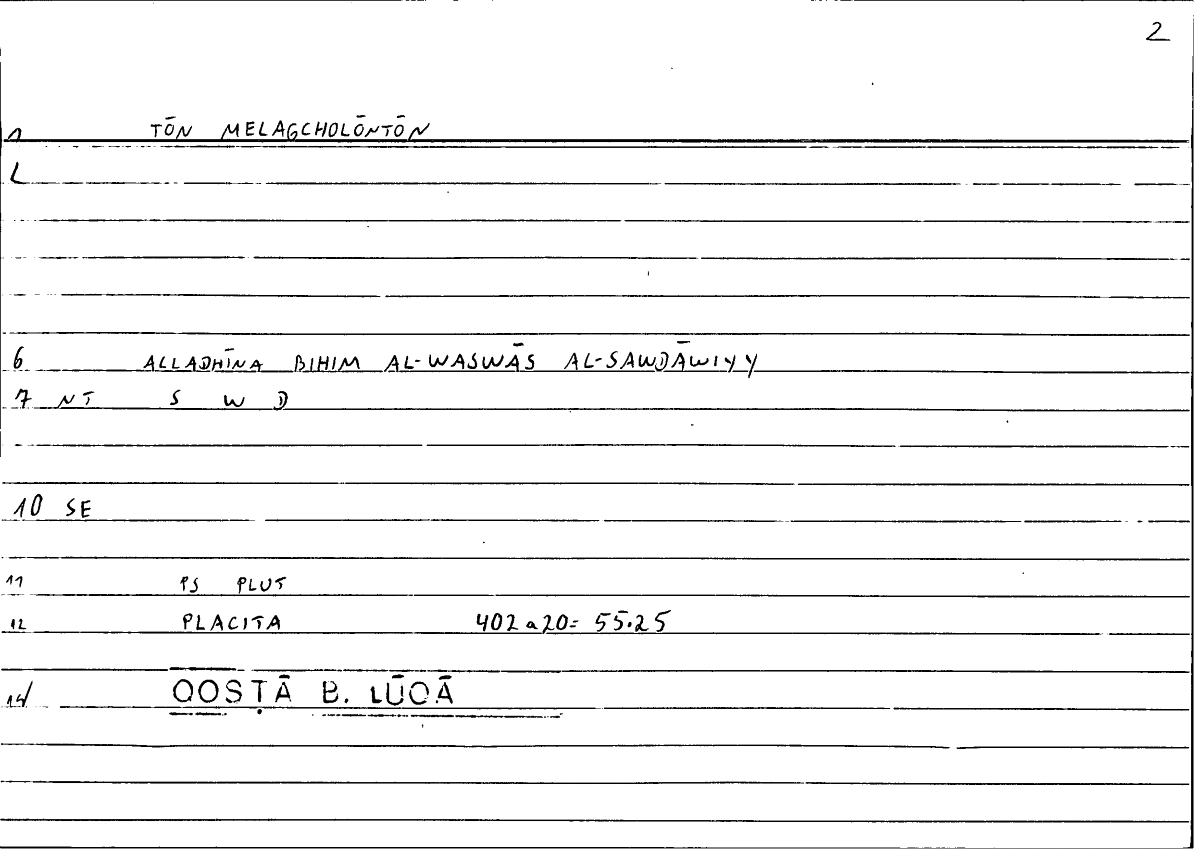 2
1 TŌN MELAGCHOLŌNTŌN
2
6 ALLADHĪNA BIHIM AL-WASWĀS AL-SAWDĀWIYY
7 NT S W D
10 SE
11 PS PLUT
12 PLACITA 402 a 20= 55.25
14 QOSṬĀ B. LŪQĀ